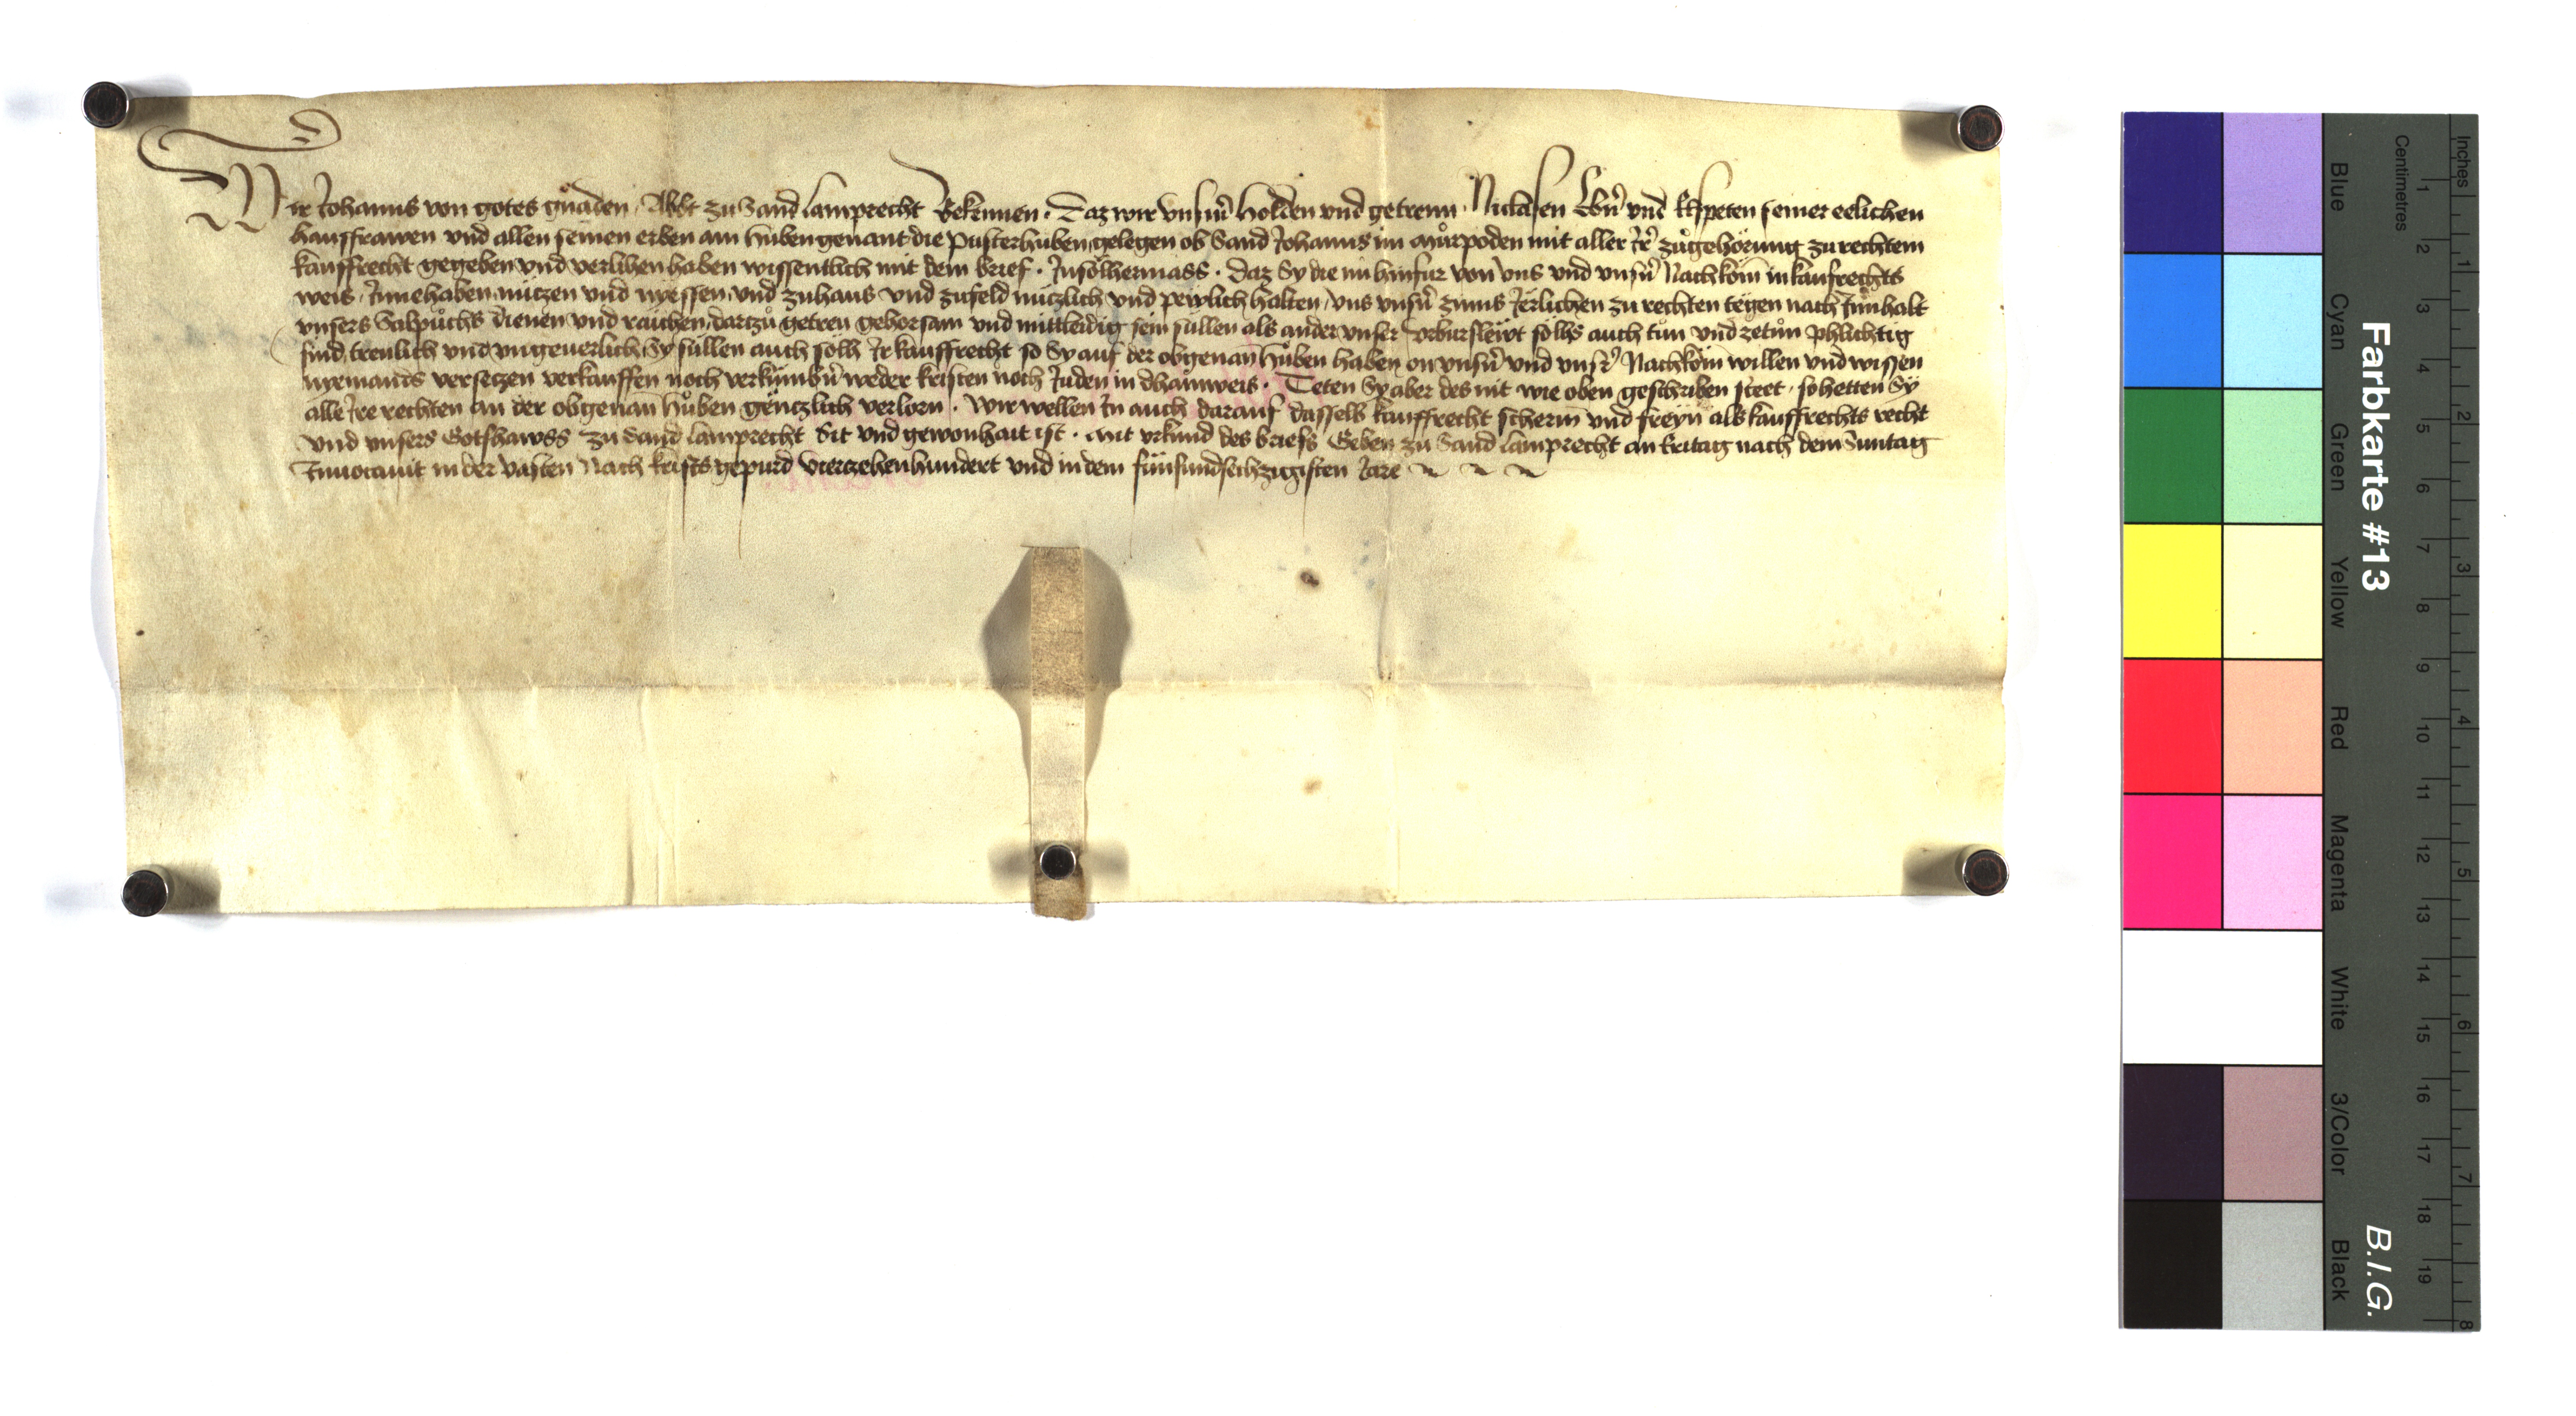 Wir Johanns von gotes gnaden Abbt zu Sand Lamprecht Bekennen · Daz wir unsern Holden und getrewn Niclasen und seiner eelichen
hausfrawen und allen seinen erben ain huben genant die Pusterhuben gelegen ob Sand Johanns im můrpoden mit aller Jrer zůgehörung zu rechtem
kauffrecht gegeben und verlihen haben wissentlich mit dem brief · Jnsölhermass · daz Sy die nu hinfur von uns und unsern Nachkōm in kaufrechts
weis Jnnehaben nützen und nyessen und zuhaus und zufeld nützlich und pewlich halten uns unsern zinns Jërlichen zu rechten tëgen nach Jnnhalt
unsers Salpůchs dienen und raichen dartzů getreu gehorsam und mittleidig sein süllen als ander unser urbursleẅt sölhs auch tun und zetůn phlichtig
sind treulich und ungeuerlich Sy süllen auch solh Jr kauffrecht so Sy auf der obgenan̄ Hůben haben on unsern und unsrer Nachkōm willen und wissen
nyemants versetzen verkauffen noch verkümbern weder kristen noch Juden in dhainweis · Teten Sy aber des nit wie oben geschriben steet · so hetten Sy
alle Jre rechten an der obgenan̄ Hůben gëntzlich verlorn · Wir wellen Jn auch darauf dasselb kauffrecht scherm̄ und freyn als kauffrechts recht
und unsers Gotshawss zu Sand Lamprecht Sit und gewonhait ist · Mit urkund des briefs Geben zu Sand Lamprecht an Freitag nach dem Suntag
Jnuocauit in der vasten Nach krists gepurd vierzehenhundert und in dem fünfundsechzigisten Jare
Farbkarte #13
B.I.G.
Blue
Cyan
Green
Yellow
Red
Magenta
White
3/Color
Black
Centimetres
1 2 3 4 5 6 7 8 9 10 11 12 13 14 15 16 17 18 19
Inches
1 2 3 4 5 6 7 8